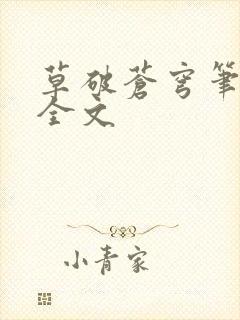 草破蒼穹筆
全文
小青家